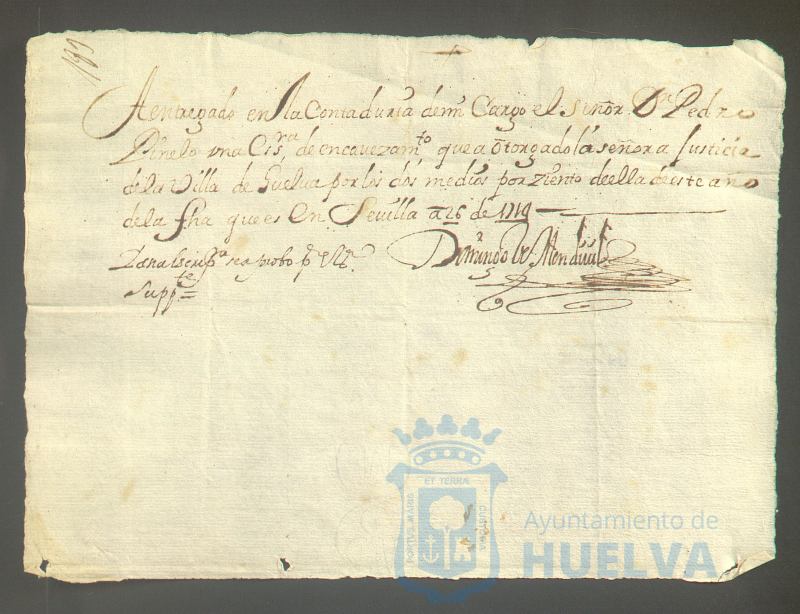 A entregado en la Contaduria de mi Cargo el Señor Dn Pedro
Pinelo una Essra de encavezamto que a otorgado la señora Justicia
de la Villa de Huelva por los dos medios por ziento de ella de este año
de la fha que es en Sevilla a 26 de 1719
Domingo de Mendivil
Suppte
ET TERRÆ
PORTUS MARIS
CUSTODIA
Ayuntamiento de
HUELVA